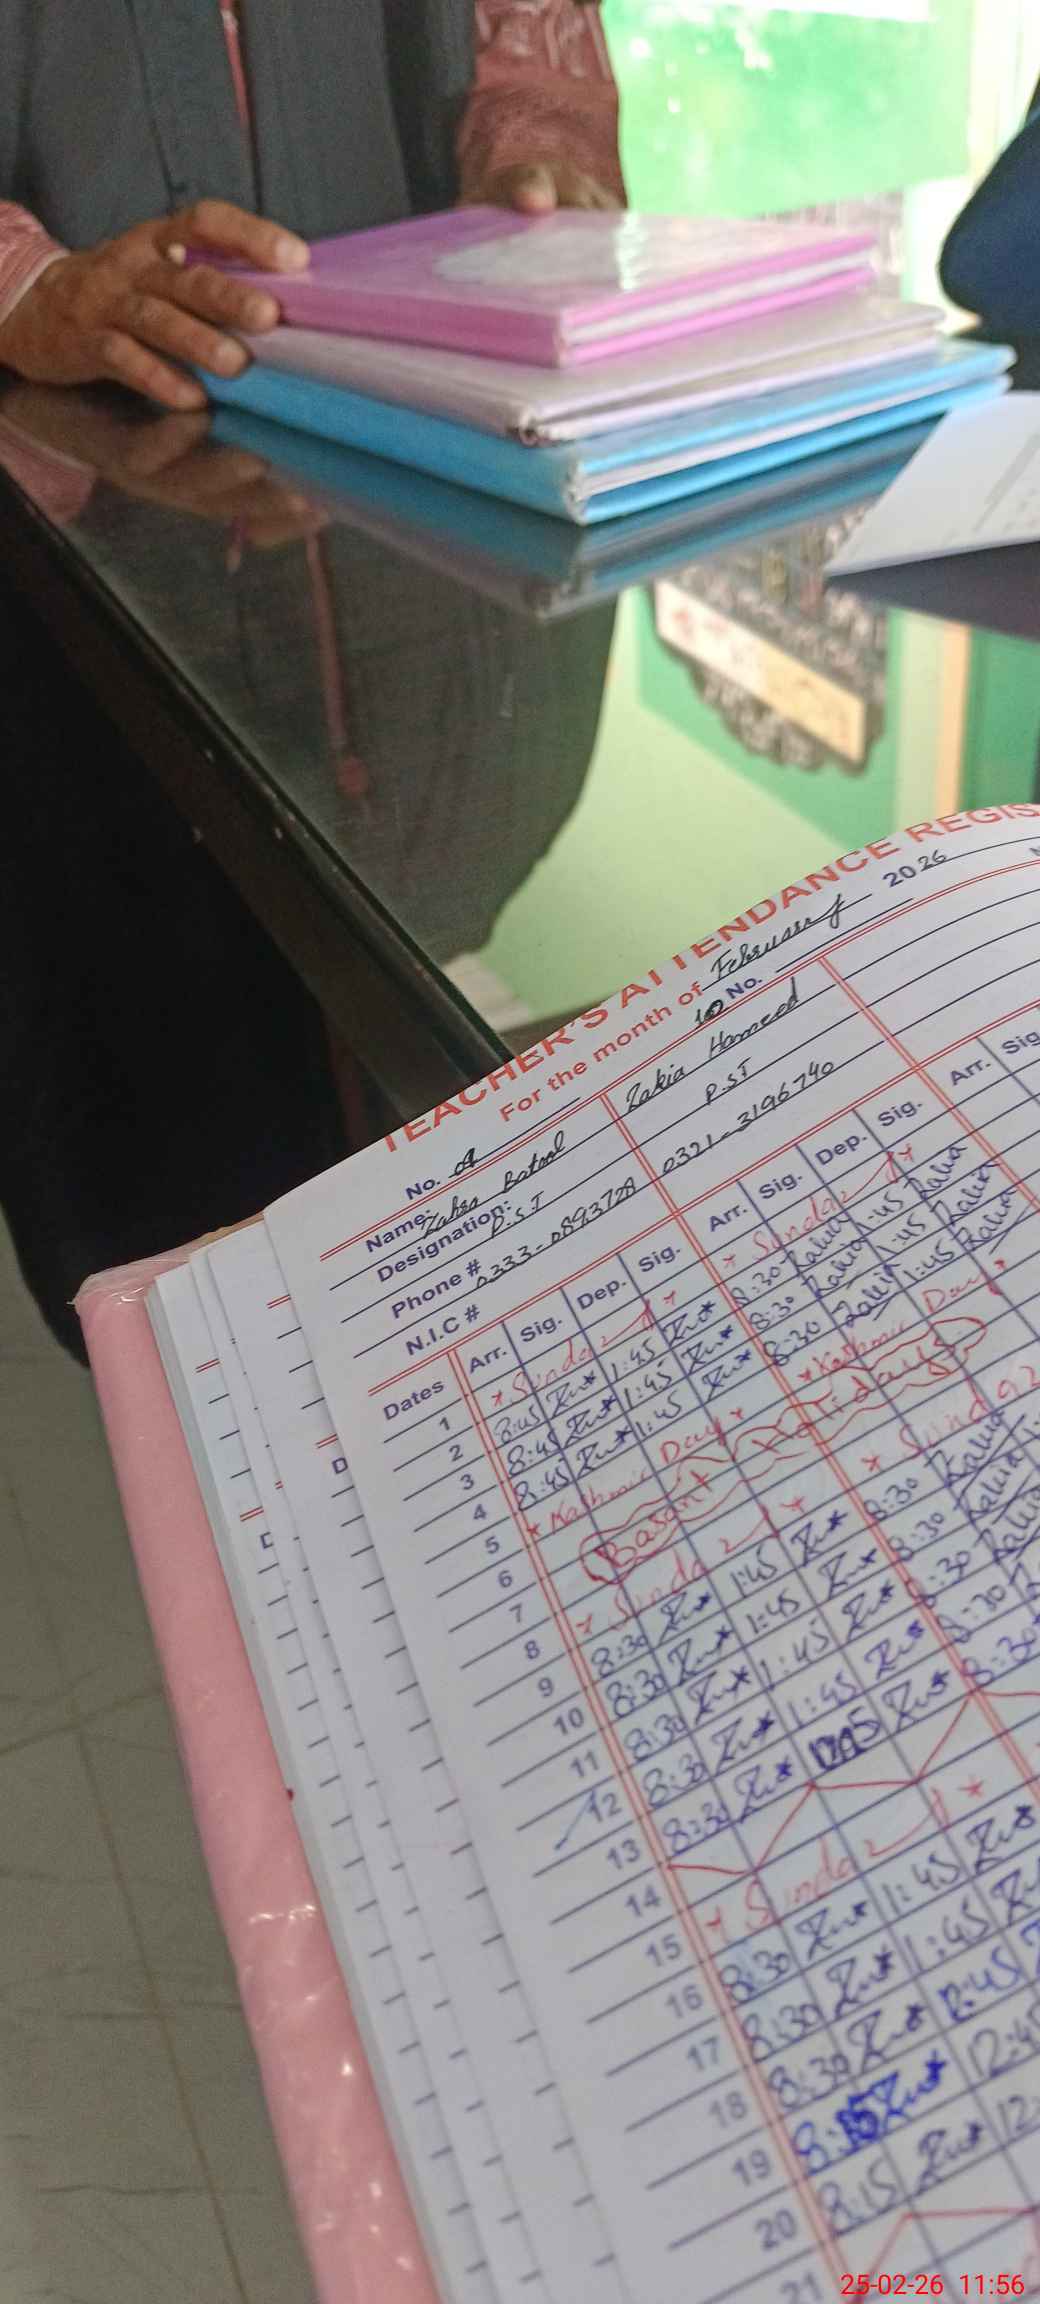 TEACHER'S ATTENDANCE REGIS
For the month of February 2026
No. 9 10 No.
Name: Zahra Batool Zakia Hameed
Designation: P.S.T P.S.T
Phone # 0333-0893728 0321-3196740
N.I.C #
Dates Arr. Sig. Dep. Sig. Arr. Sig. Dep. Sig. Arr. Sig
1 * Sunday * * Sunday *
2 8:45 1:45 8:30 Zakia 1:45 Zakia
3 8:45 1:45 8:30 Zakia 1:45 Zakia
4 8:45 1:45 8:30 Zakia 1:45 Zakia
5 * Kashmir Day * * Kashmir Day *
6 Basant Holidays
7
8 * Sunday * * Sunday
9 8:30 1:45 8:30 Zakia
10 8:30 1:45 8:30 Zakia
11 8:30 1:45 8:30 Zakia
12 8:30 1:45 8:30
13 8:30 8:30
14
15 * Sunday *
16 8:30 1:45
17 8:30 1:45
18 8:30 12:45
19 8:15 12:45
20 8:15 12:
21
25-02-26 11:56